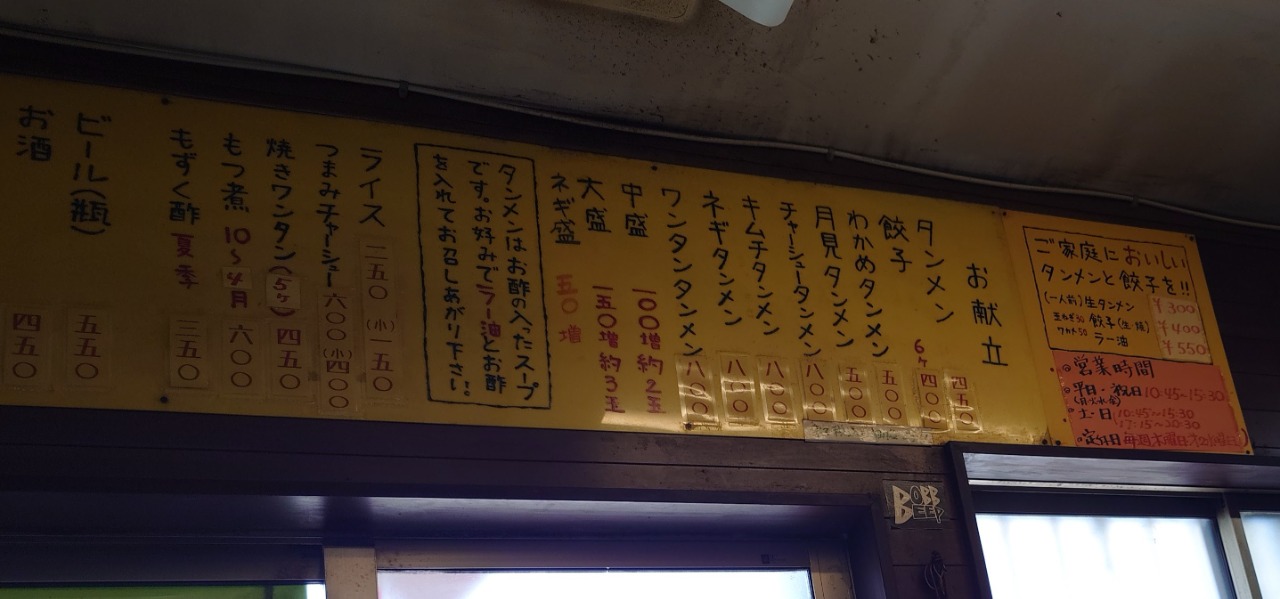 お献立
タンメン 四五〇
餃子 6ヶ 四〇〇
わかめタンメン 五〇〇
月見タンメン 五〇〇
チャーシュータンメン 八〇〇
キムチタンメン 八〇〇
ネギタンメン 八〇〇
ワンタンタンメン 八〇〇
中盛 一〇〇増 約2玉
大盛 一五〇増 約3玉
ネギ盛 五〇増
タンメンはお酢の入ったスープ
です。お好みでラー油とお酢
を入れておめしあがり下さい!!
ライス 二五〇 (小)一五〇
つまみチャーシュー 六〇〇 (小)四〇〇
焼きワンタン(5ヶ) 四五〇
もつ煮 10〜4月 六〇〇
もずく酢 夏季 三五〇
ビール(瓶) 五五〇
お酒 四五〇
ご家庭においしい
タンメンと餃子を!!
(一人前)生タンメン ¥300
玉ねぎ50 餃子(生・焼) ¥400
ワカメ50 ラー油 ¥550
営業時間
平日・祝日 10:45〜15:30
(月火水金)
土・日 10:45〜15:30
17:15〜20:30
定休日 毎週木曜日
BOBB
DEEP